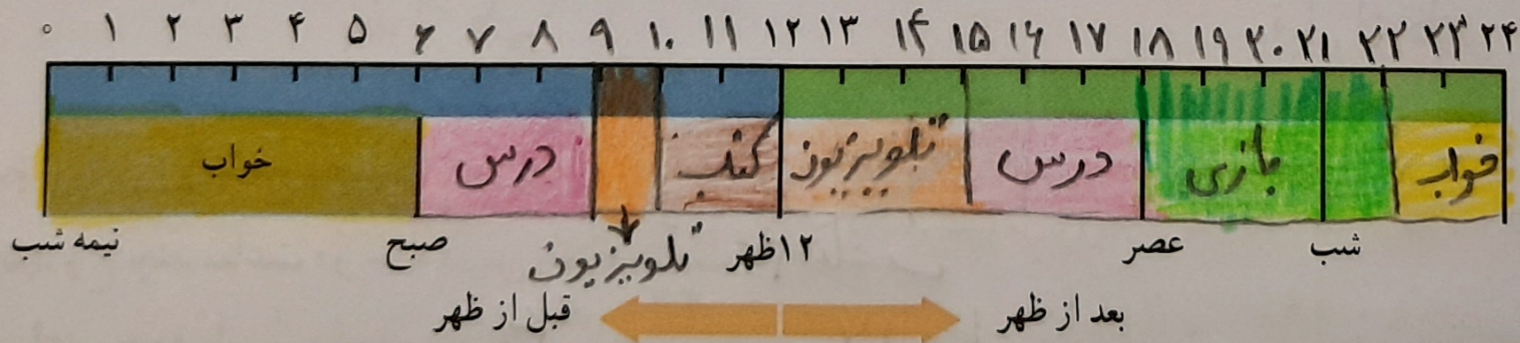 ۰ ۱ ۲ ۳ ۴ ۵ ۶ ۷ ۸ ۹ ۱۰ ۱۱ ۱۲ ۱۳ ۱۴ ۱۵ ۱۶ ۱۷ ۱۸ ۱۹ ۲۰ ۲۱ ۲۲ ۲۳ ۲۴
خواب درس کتاب تلویزیون درس بازی خواب
نیمه شب صبح تلویزیون ۱۲ظهر عصر شب
قبل از ظهر بعد از ظهر